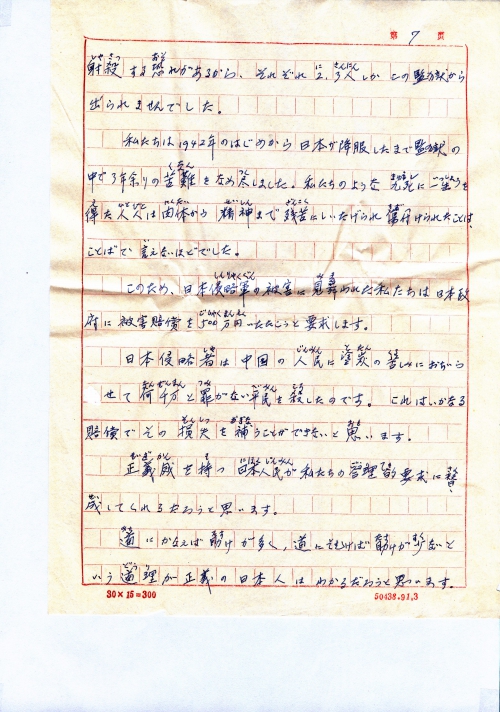 第 7 页
射殺する恐れがあるから、それぞれ2、3人しかこの監獄から
出られませんでした。
私たちは1942年のはじめから日本が降服したまで監獄の
中で3年余りの苦難をなめ尽しました。私たちのような
得た人人は肉体から精神まで残苦にしいたげられ傷付けられたことは、
ことばで言えないほどでした。
このため、日本侵略軍の被害に見舞われた私たちは日本政
府に被害賠償を500万円いただこうと要求します。
日本侵略者は中国の人民に塗炭の苦しみにおちいら
せて荷千万と罪がない平民を殺したのです。これはいかなる
賠償でその損失を補うことができないと思います。
正義感を持つ日本人民が私たちの管理的要求に賛
成してくれるだろうと思います。
道にかなえば助けが多く,道にそむけば助けが少ないと
いう道理が正義の日本人はわかるだろうと思います。
30×15=300
50438.91.3